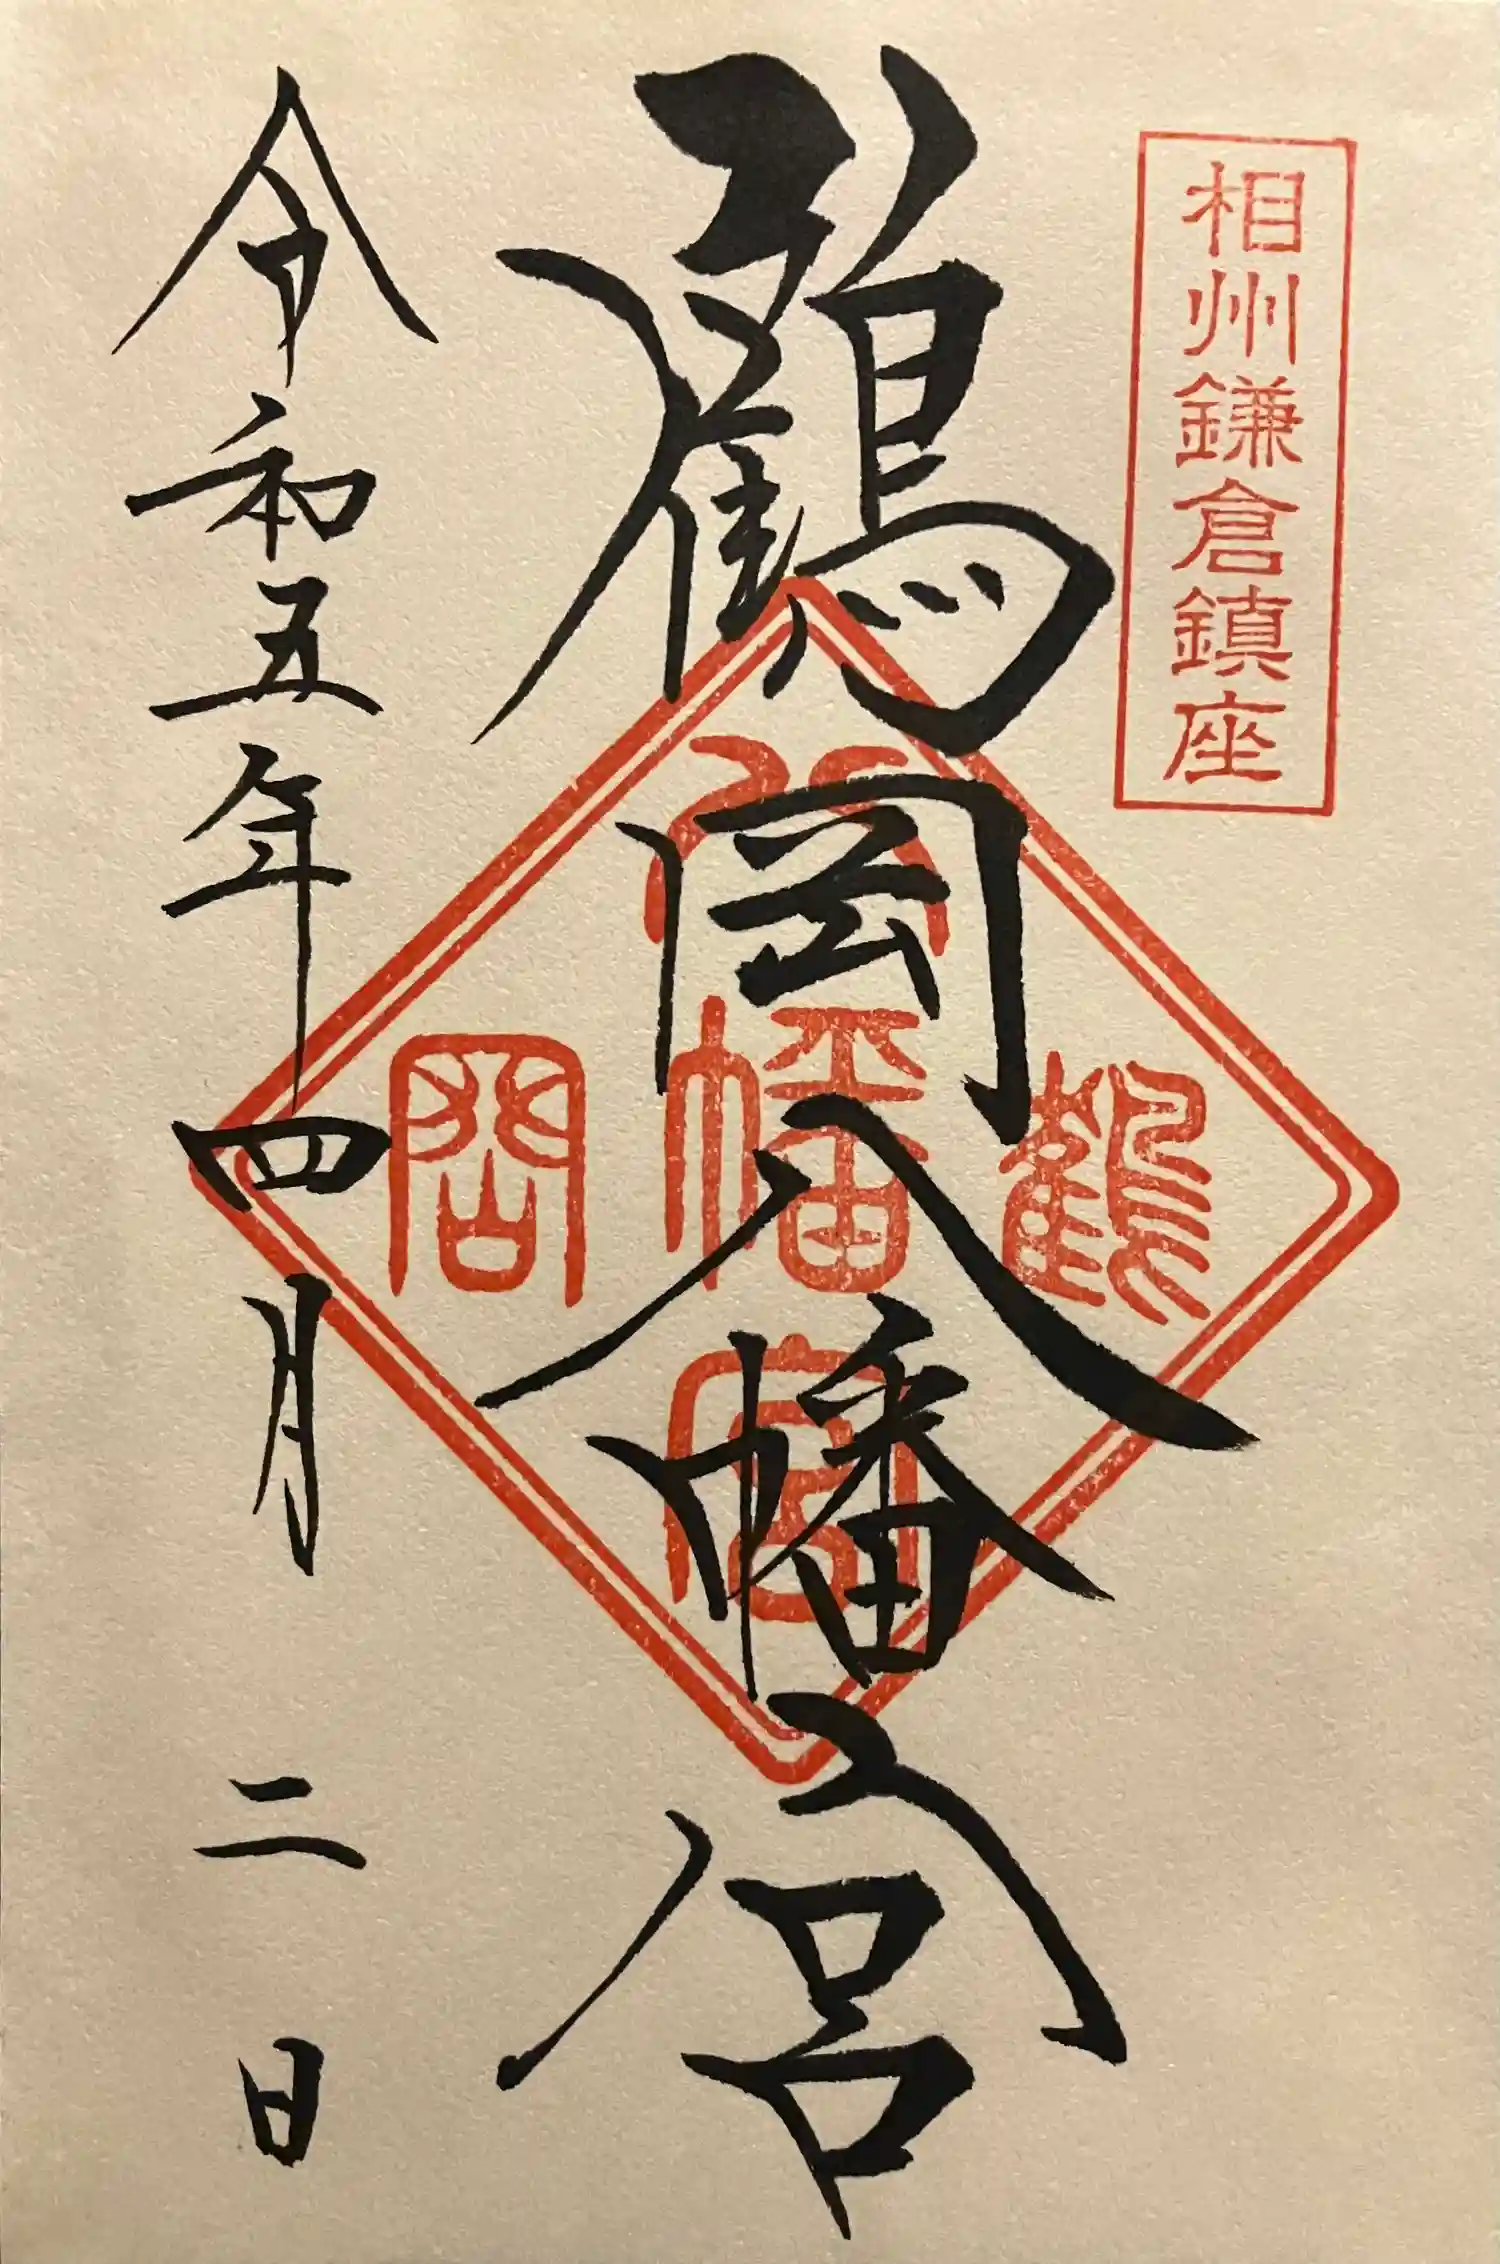 相州鎌倉鎮座
鶴岡八幡宮
鶴
八幡宮
岡
令和五年四月二日